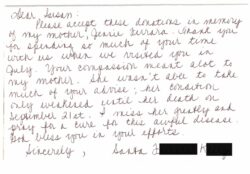 Dear Susan,
Please accept these donations in memory
of my mother, Jennie Ferrara. Thank you
for spending so much of your time
with us when we visited you in
July. Your compassion meant alot to
my mother. She wasn't able to take
much of your advise; her condition
only weakened until her death on
September 21st. I miss her greatly and
pray for a cure for this awful disease.
God bless you in your efforts.
Sincerely